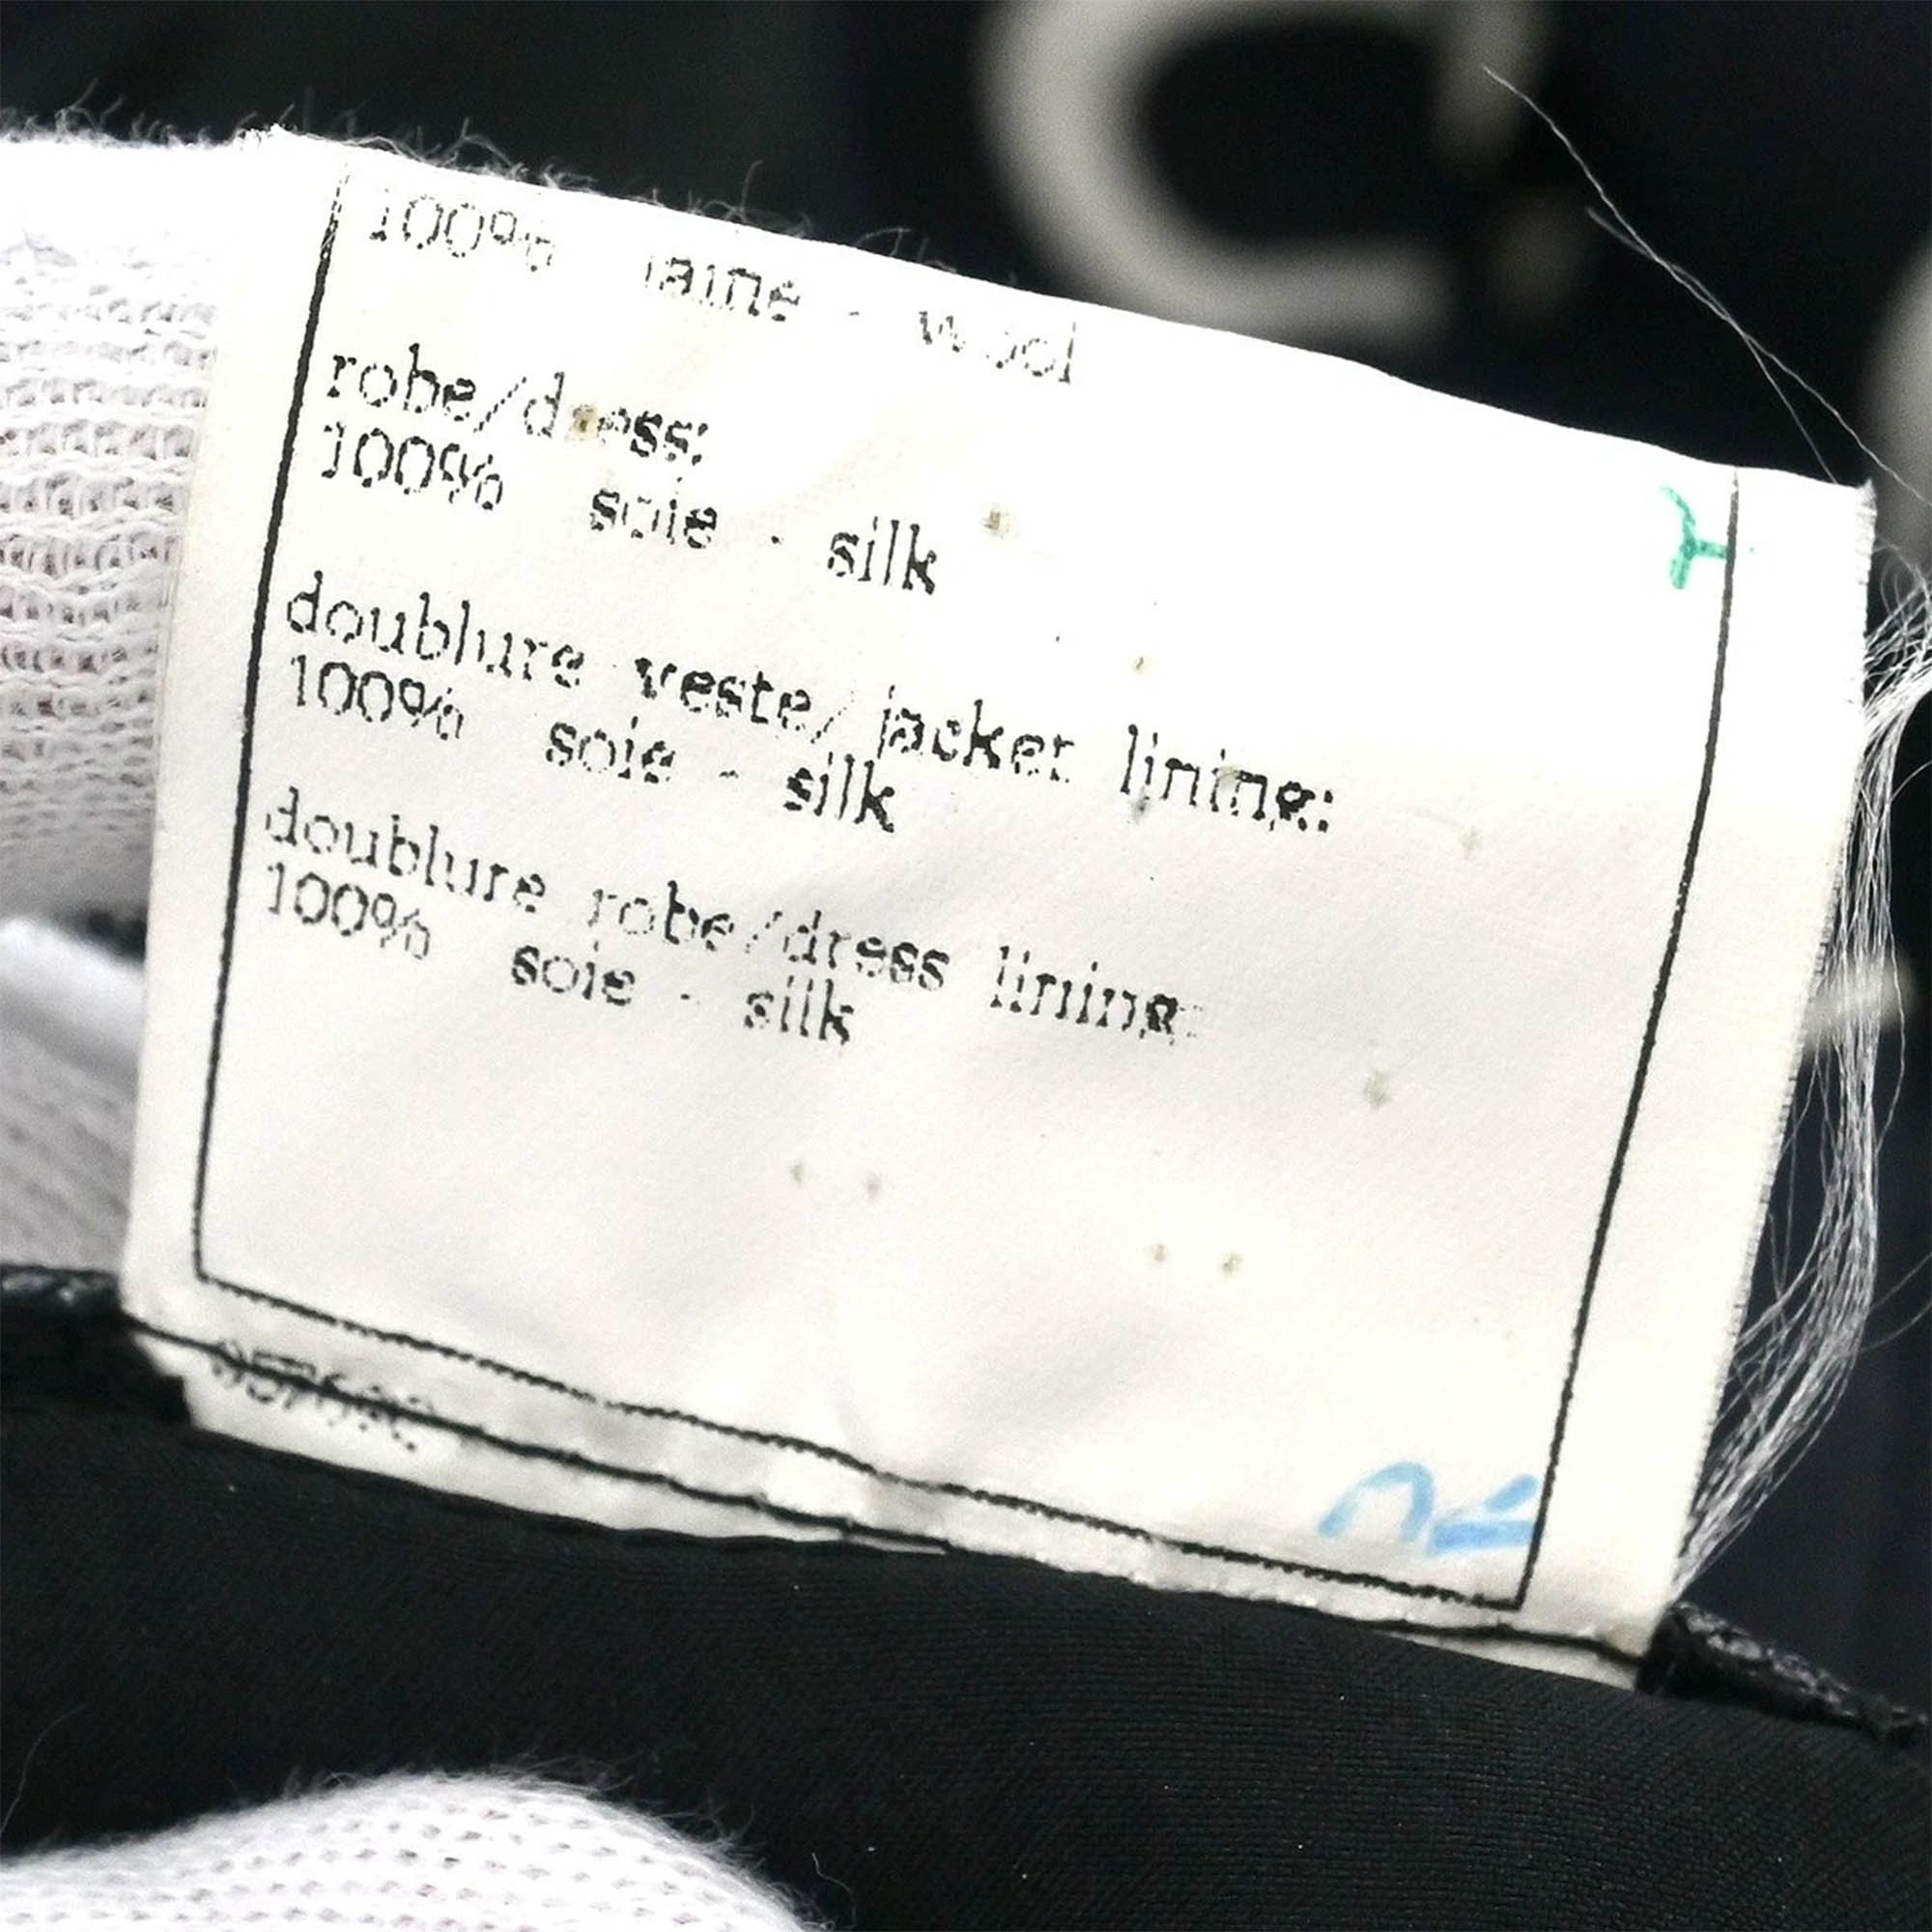 100% laine - wool
robe/dress:
100% soie - silk
doublure veste/ jacket lining:
100% soie - silk
doublure robe/dress lining:
100% soie - silk